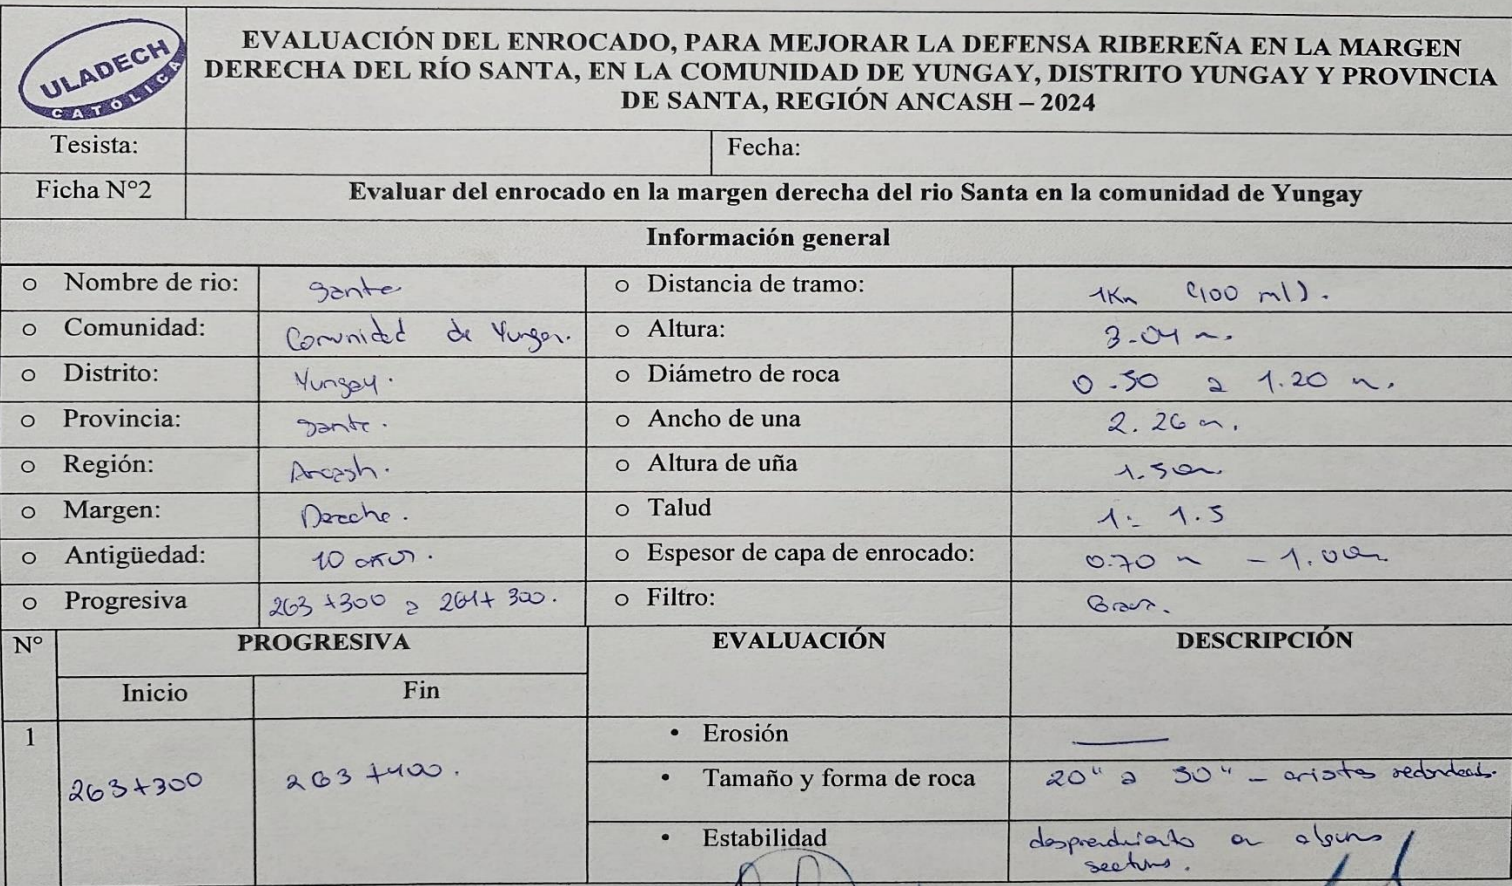 ULADECH
CATÓLICA
EVALUACIÓN DEL ENROCADO, PARA MEJORAR LA DEFENSA RIBEREÑA EN LA MARGEN
DERECHA DEL RÍO SANTA, EN LA COMUNIDAD DE YUNGAY, DISTRITO YUNGAY Y PROVINCIA
DE SANTA, REGIÓN ANCASH – 2024
Tesista: Fecha:
Ficha N°2 Evaluar del enrocado en la margen derecha del rio Santa en la comunidad de Yungay
Información general
o Nombre de rio: Santa o Distancia de tramo: 1Km (100 ml).
o Comunidad: Comunidad de Yungay. o Altura: 3.04 m.
o Distrito: Yungay. o Diámetro de roca 0.50 a 1.20 m.
o Provincia: Santa. o Ancho de una 2.26 m.
o Región: Ancash. o Altura de uña 1.50m
o Margen: Derecha. o Talud 1: 1.5
o Antigüedad: 10 años. o Espesor de capa de enrocado: 0.70 m - 1.00m
o Progresiva 263+300 a 264+300. o Filtro:
N° PROGRESIVA EVALUACIÓN DESCRIPCIÓN
Inicio Fin
1 263+300 263+400. • Erosión —
• Tamaño y forma de roca 20" a 30" - aristas redondeas.
• Estabilidad desprendimiento en algunos
sectores.